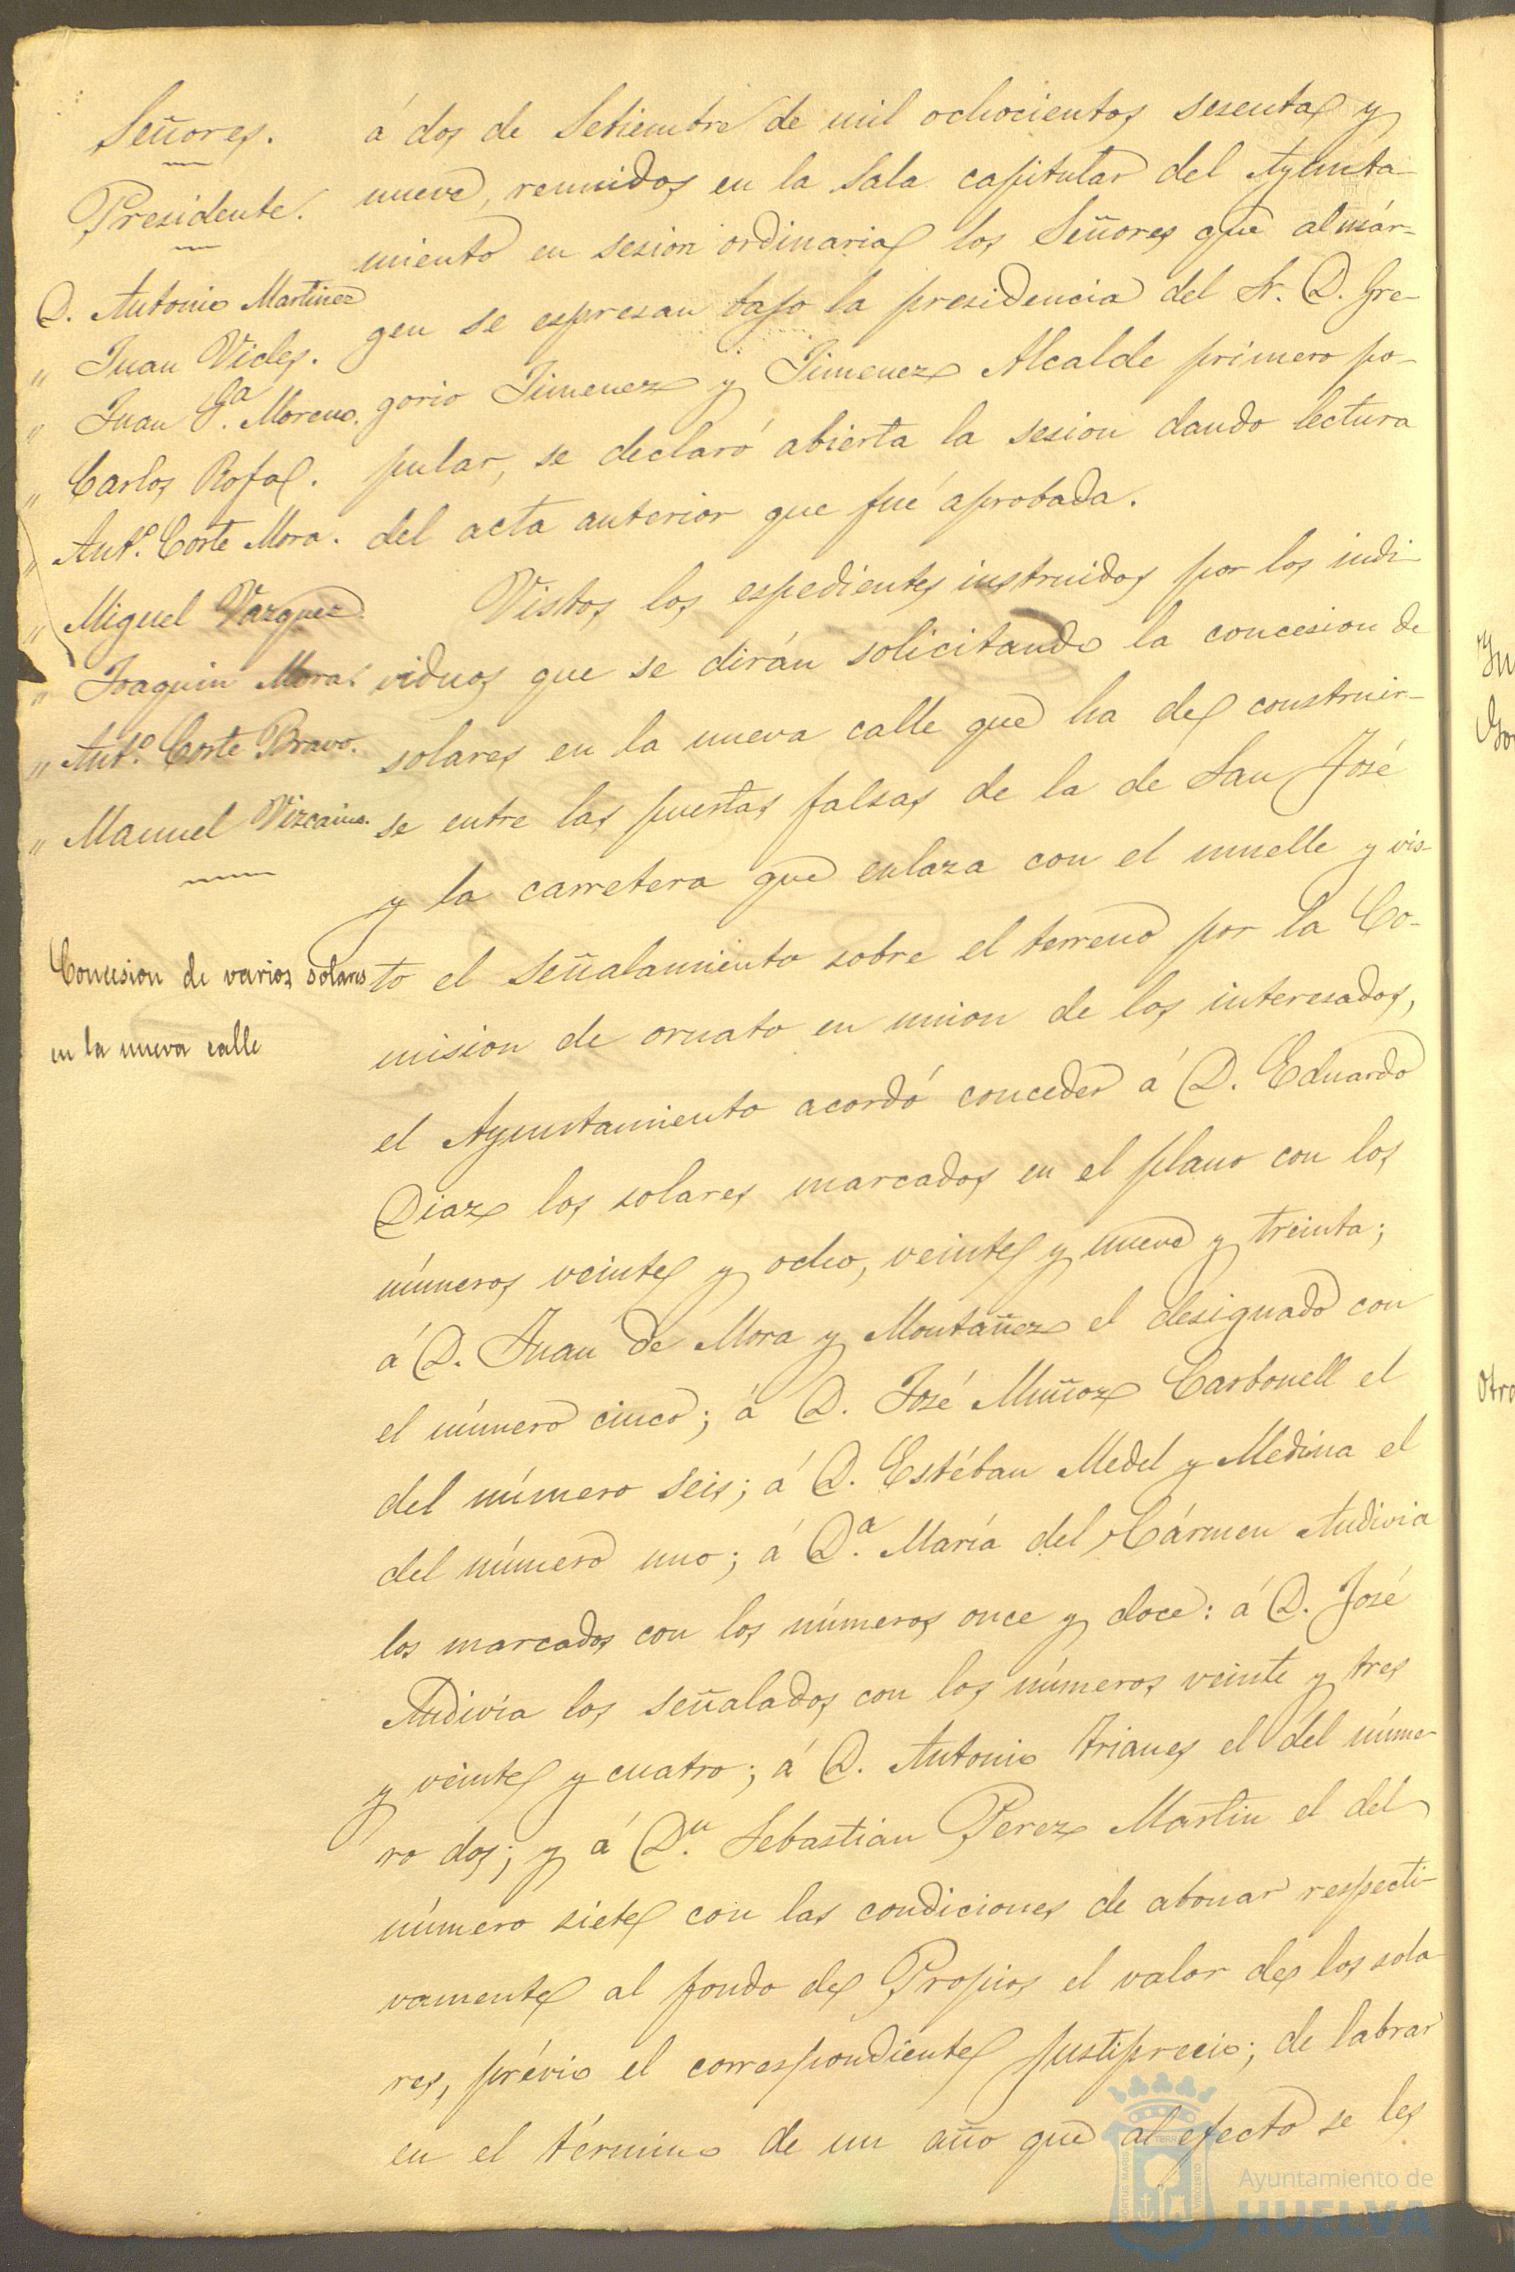 Señores.
Presidente.
D. Antonio Martinez
" Juan Vides.
" Juan G.a Moreno.
" Carlos Rofa.
" Ant.o Corte Mora.
" Miguel Vazquez
" Joaquin Mora
" Ant.o Corte Bravo.
" Manuel Vizcaino.
Concesion de varios solares
en la nueva calle
á dos de Setiembre de mil ochocientos sesenta y
nueve, reunidos en la sala capitular del Ayunta-
miento en sesion ordinaria los Señores que al már-
gen se espresan bajo la presidencia del Sr. D. Gre-
gorio Jimenez y Jimenez Alcalde primero po-
pular, se declaró abierta la sesion dando lectura
del acta anterior que fué aprobada.
Vistos los espedientes instruidos por los indi-
viduos que se dirán solicitando la concesion de
solares en la nueva calle que ha de construir-
se entre las puertas falsas de la de San José
y la carretera que enlaza con el muelle y vis-
to el señalamiento sobre el terreno por la Co-
mision de ornato en union de los interesados,
el Ayuntamiento acordó conceder á D. Eduardo
Diaz los solares marcados en el plano con los
números veinte y ocho, veinte y nueve y treinta;
á D. Juan de Mora y Montañez el designado con
el número cinco; á D. José Muñoz Carbonell el
del número seis; á D. Estéban Medel y Medina el
del número uno; á D.a María del Cármen Andivia
los marcados con los números once y doce: á D. José
Andivia los señalados con los números veinte y tres
y veinte y cuatro; á D. Antonio Trianes el del núme-
ro dos; y á D.n Sebastian Perez Martin el del
número siete con las condiciones de abonar respecti-
vamente al fondo de Propios el valor de los sola-
res, prévio el correspondiente justiprecio; de labrar
en el término de un año que al efecto se les
Otro
Ayuntamiento de
HUELVA